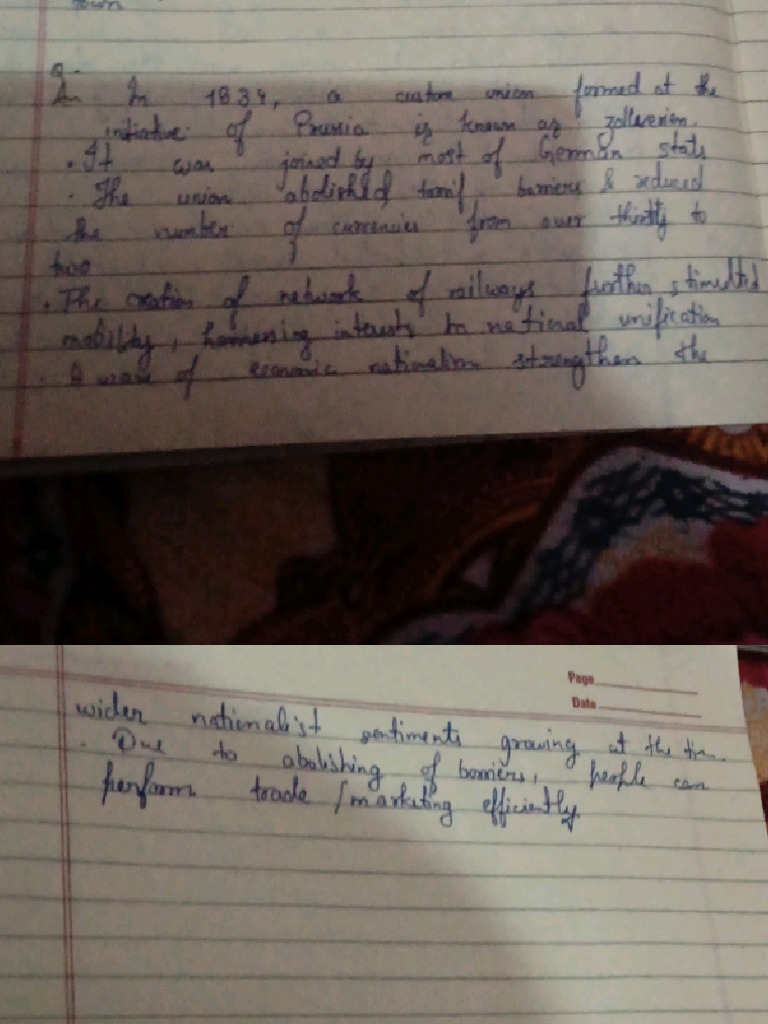 In 1834, a custom union formed at the
initiative of Prussia is known as zollverein.
• It was joined by most of German stats
• The union abolished tarrif barriers & reduced
the number of currencies from over thirdty to
two
• The creation of network of railways further stimulted
mobility, harnessing interests to national unification
• A wave of economic nationalism strengthen the
Page
Date
wider nationalist sentiments growing at the time.
• Due to abolishing of barriers, people can
perform trade / marketing efficiently.